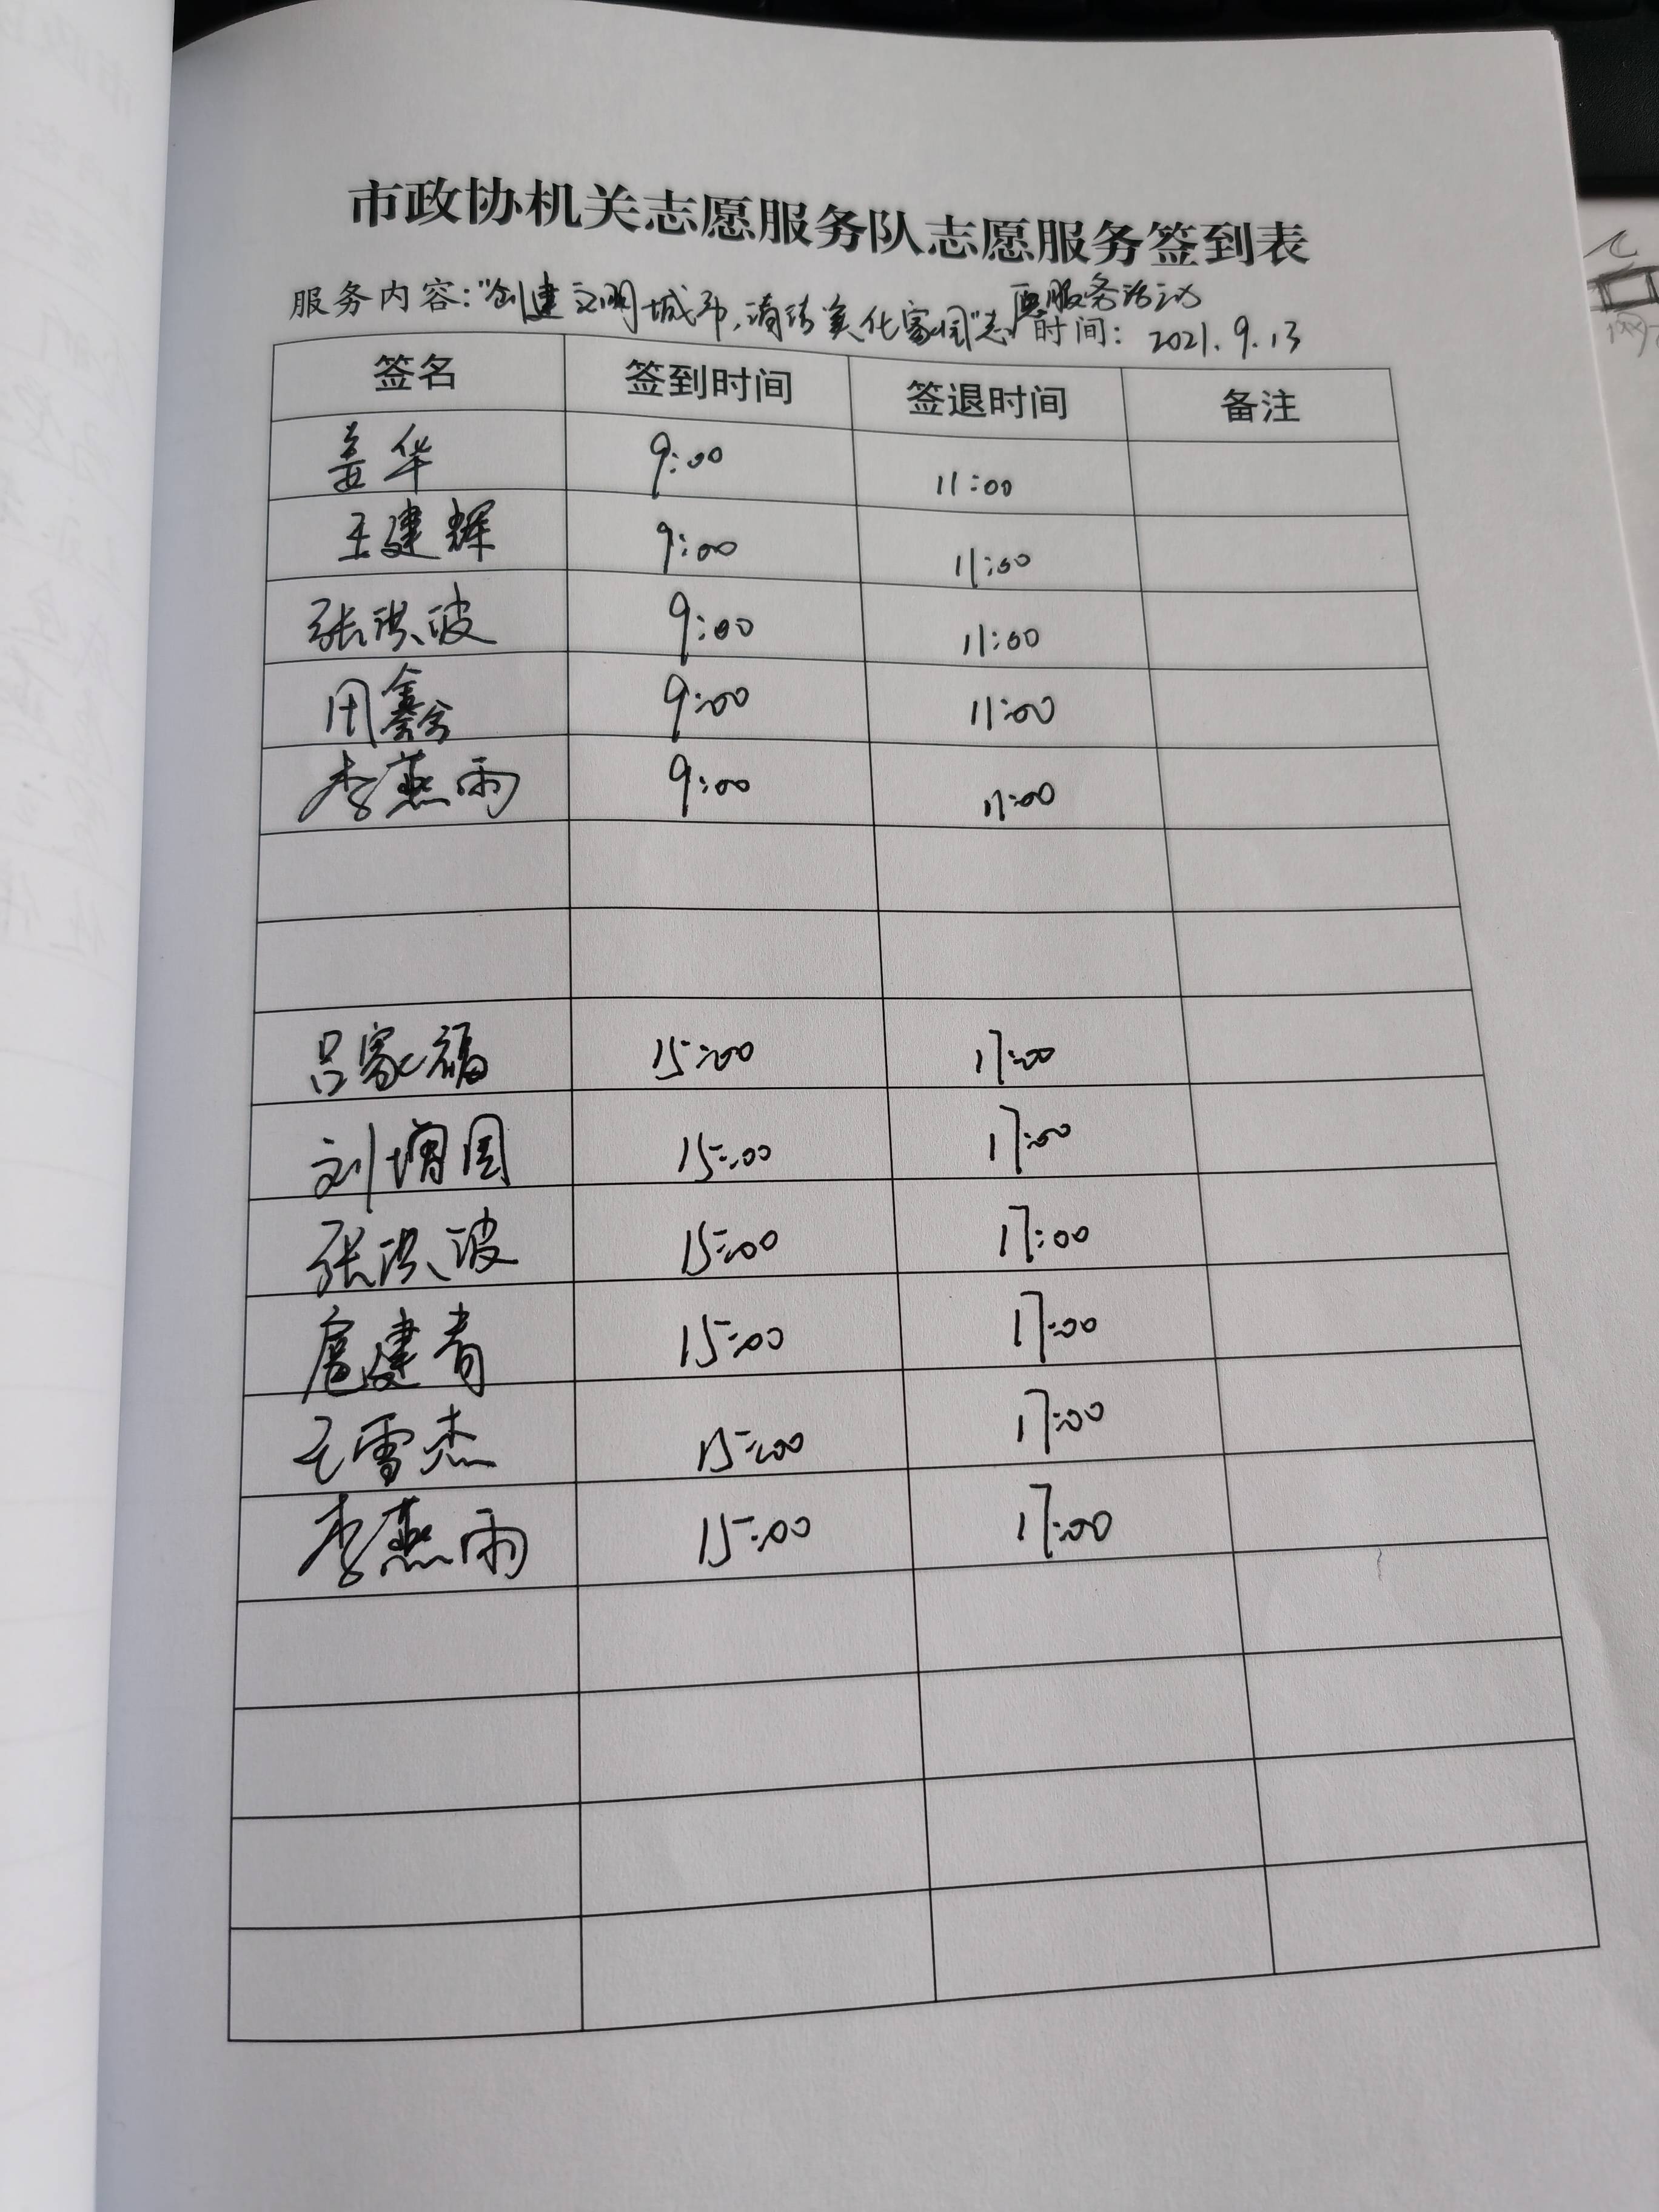 市政协机关志愿服务队志愿服务签到表
服务内容:“创建文明城市,清洁美化家园”志愿服务活动 时间: 2021.9.13
签名 签到时间 签退时间 备注
姜华 9:00 11:00
王建辉 9:00 11:00
张洪波 9:00 11:00
周鑫 9:00 11:00
李燕雨 9:00 11:00
吕家福 15:00 17:00
刘增国 15:00 17:00
张洪波 15:00 17:00
扈建青 15:00 17:00
王雪杰 15:00 17:00
李燕雨 15:00 17:00